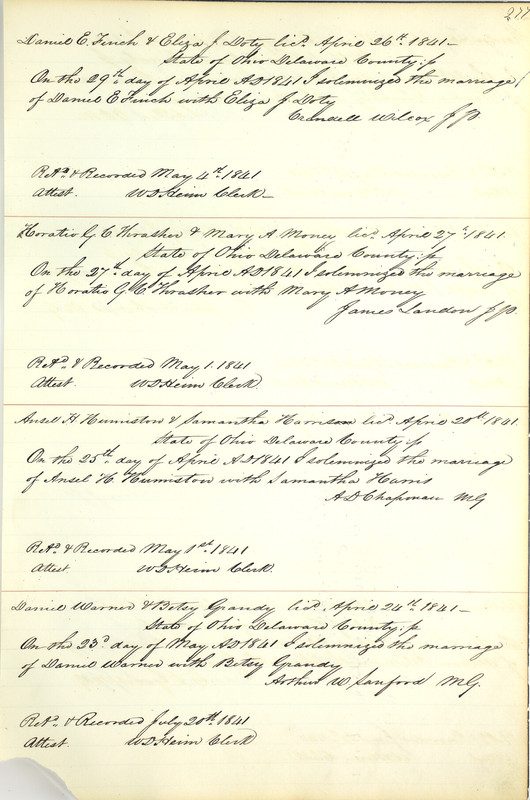 277
Daniel E. Finch & Eliza J Doty licd. April 26th. 1841—
State of Ohio Delaware County; ss
On the 29th. day of April AD 1841 I solemnized the marriage
of Daniel E Finch with Eliza J Doty
Crandell Wilcox J P.
Retd. & Recorded May 4th. 1841
Attest. W D Heim Clerk—
Horatio G C Thrasher & Mary A Money licd. April 27th. 1841.
State of Ohio Delaware County; ss
On the 27th. day of April AD 1841 I solemnized the marriage
of Horatio G C Thrasher with Mary A Money
James Landon J P.
Retd. & Recorded May 1. 1841
Attest. W D Heim Clerk.
Ansel H Humiston & Samantha Harrison licd. April 20th 1841.
State of Ohio Delaware County ss
On the 25th. day of April AD 1841 I solemnized the marriage
of Ansel H. Humiston with Samantha Harris
A D Chapman M G
Retd. & Recorded May 1st. 1841
Attest. W D Heim Clerk.
Daniel Warner & Betsy Grandy licd. April 24th. 1841—
State of Ohio Delaware County; ss
On the 23d. day of May AD 1841 I solemnized the marriage
of Daniel Warner with Betsy Grandy
Arthur W Sanford M G.
Retd. & Recorded July 20th. 1841
Attest. W D Heim Clerk